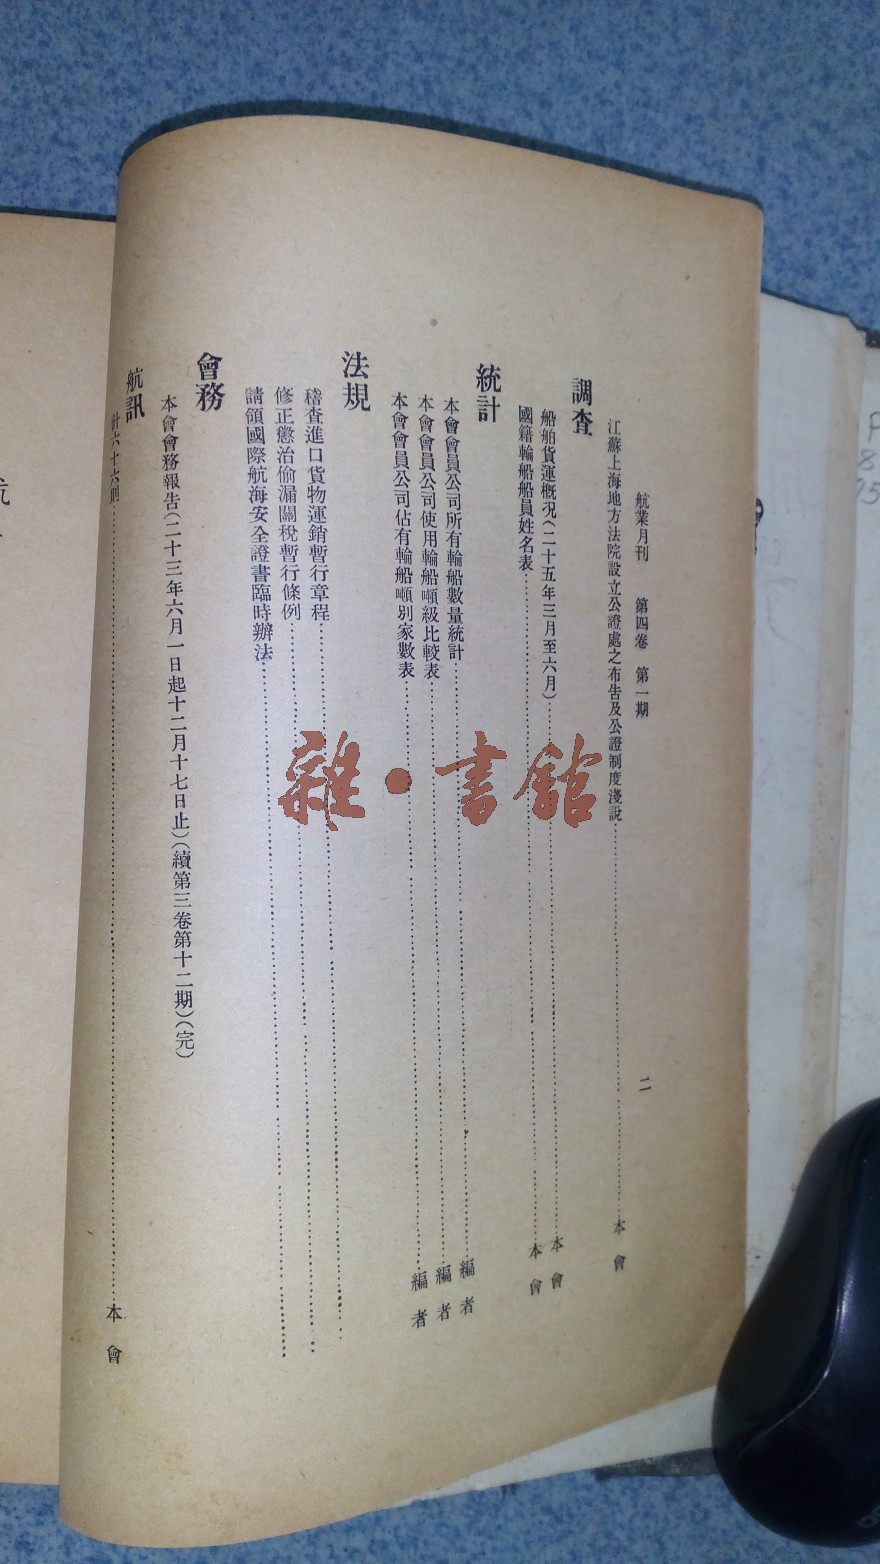 航業月刊 第四卷 第一期 二
江蘇上海地方法院設立公證處之布告及公證制度淺說 本會
調查
船舶貨運概況(二十五年三月至六月) 本會
國籍輪船船員姓名表 本會
統計
本會會員公司所有輪船數量統計 編者
本會會員公司使用輪船噸級比較表 編者
本會會員公司佔有輪船噸別家數表 編者
法規
稽查進口貨物運銷暫行章程
修正懲治偷漏關稅暫行條例
請領國際航海安全證書臨時辦法
會務
本會會務報告(二十三年六月一日起十二月十七日止)(續第三卷第十二期)(完)
航訊
計六十六則 本會
雜·書館